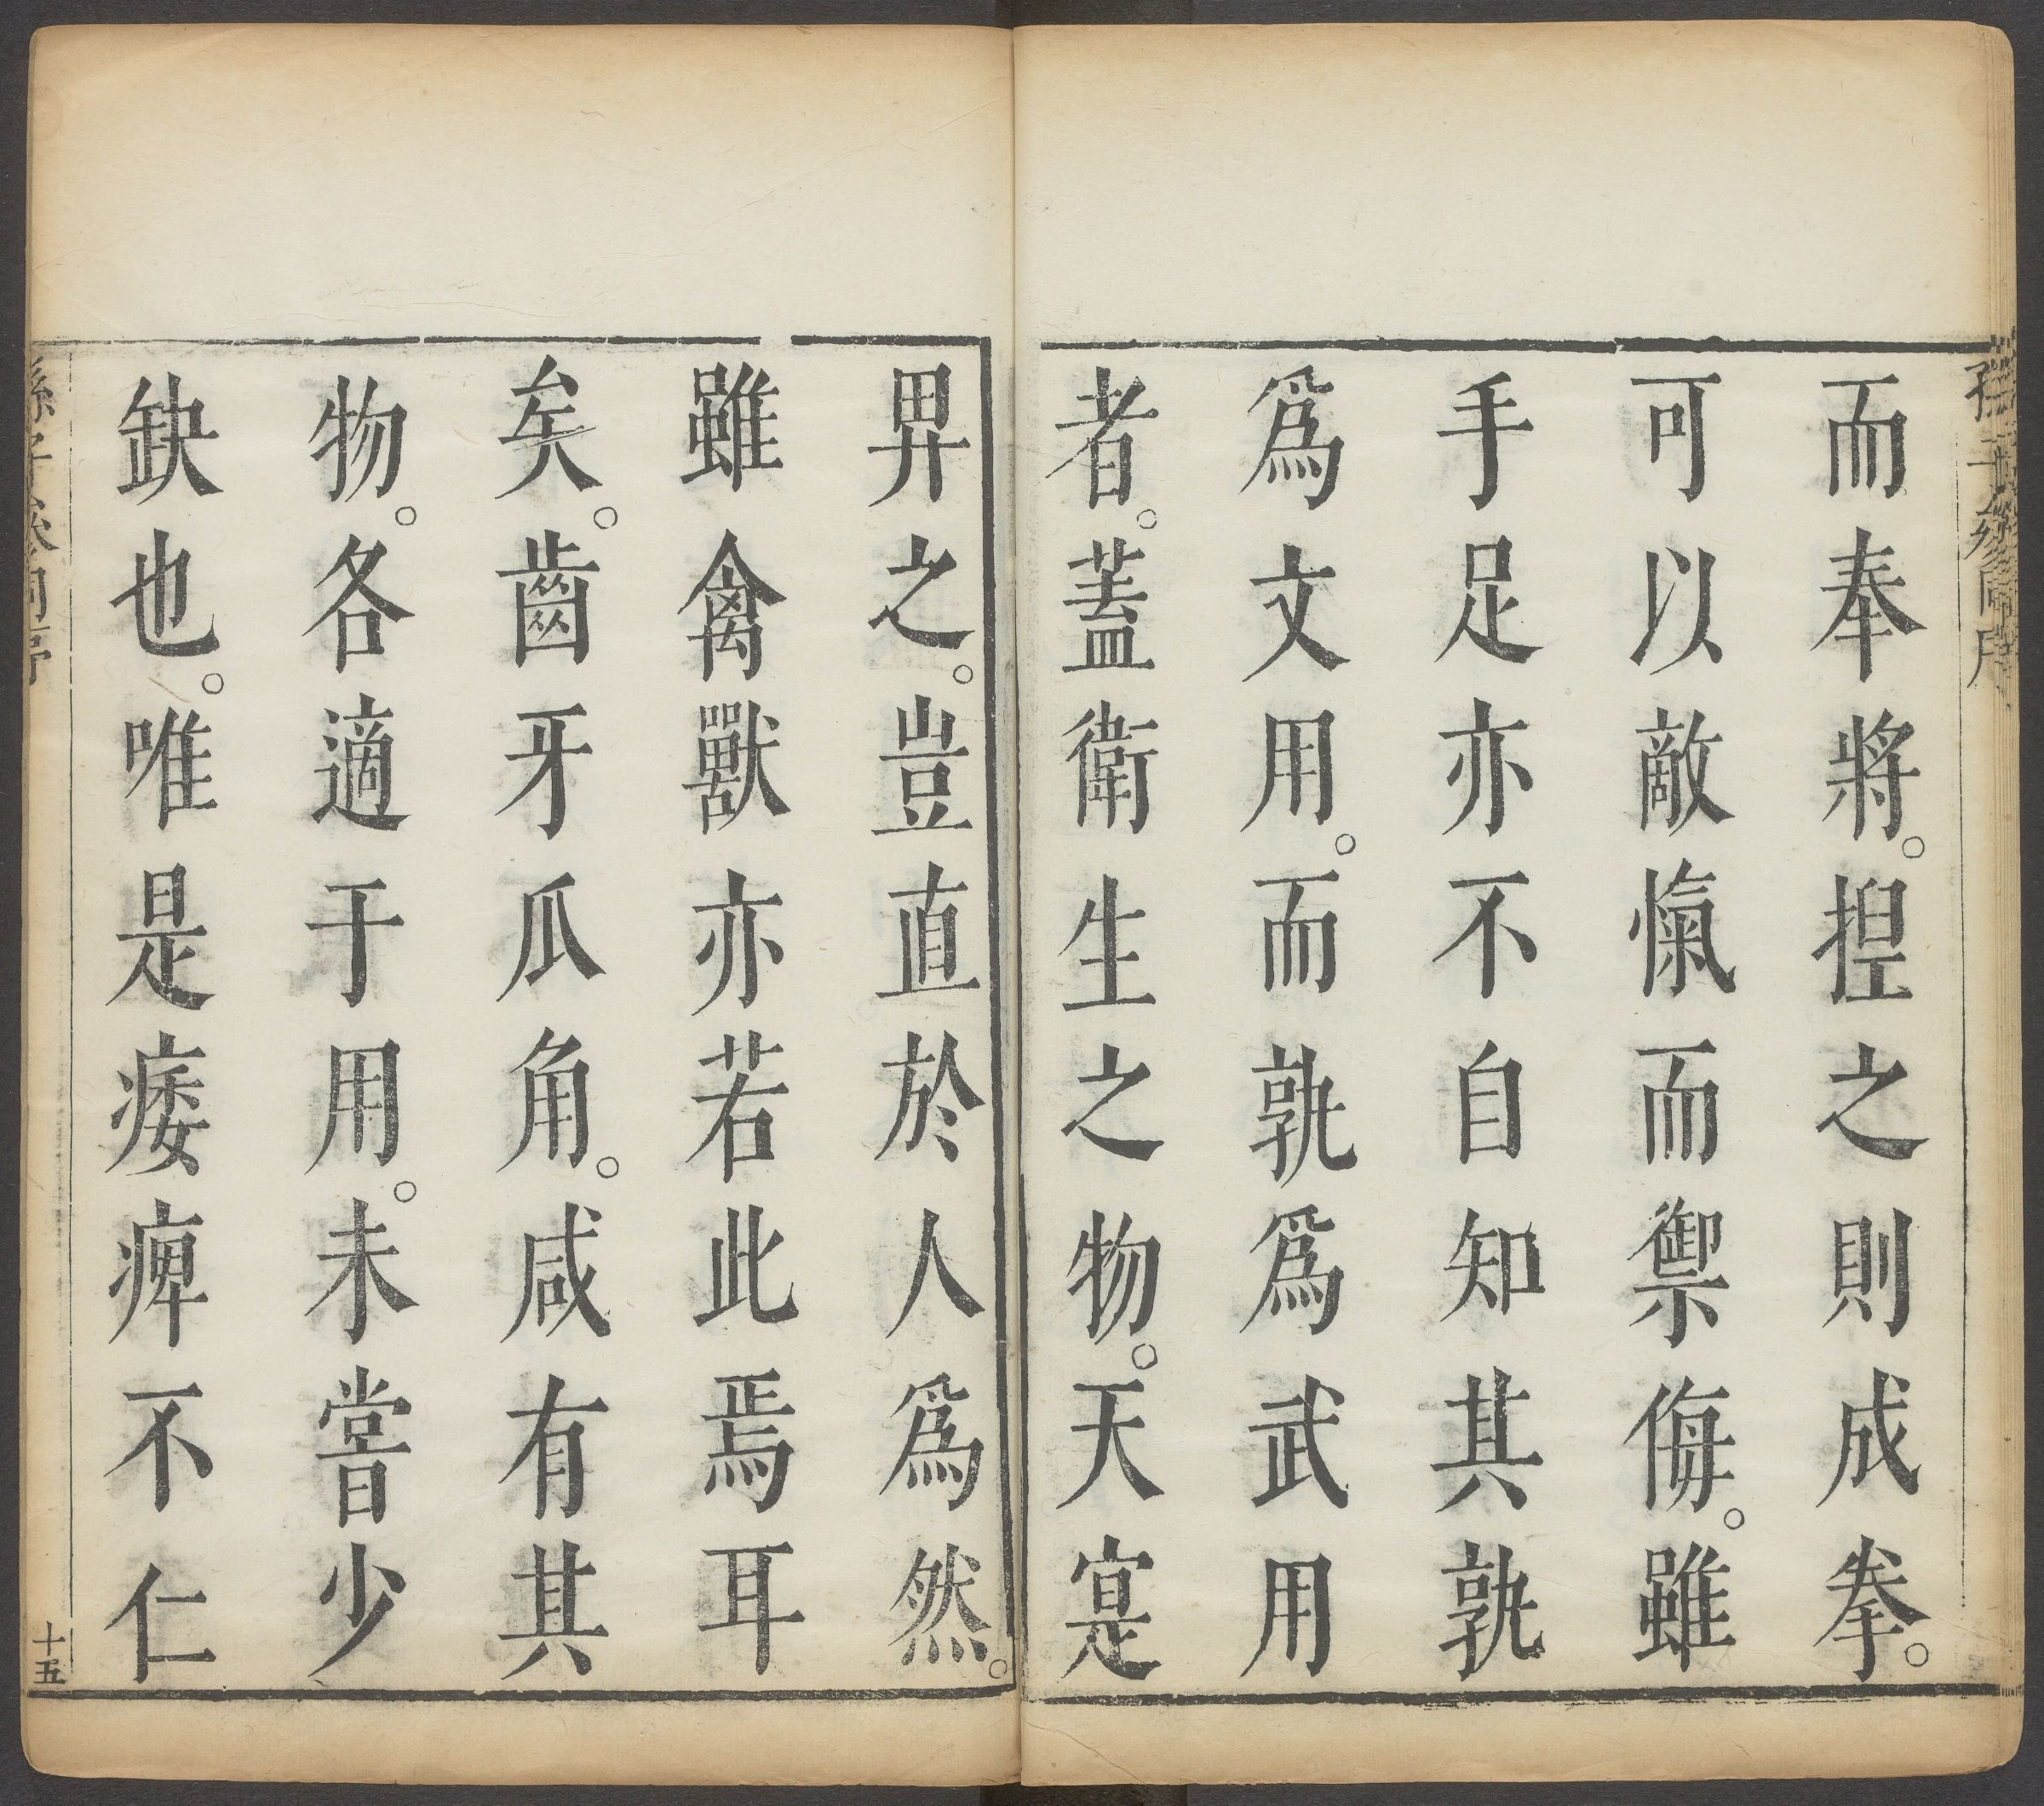 而奉將。揑之則成拳。
可以敵愾而禦侮。雖
手足亦不自知其孰
爲文用。而孰爲武用
者。蓋衛生之物。天寔
畀之。豈直於人爲然。
雖禽獸亦若此焉耳
矣。齒牙爪角。咸有其
物。各適于用。未嘗少
缺也。唯是痿痺不仁
孫子參同序
十五